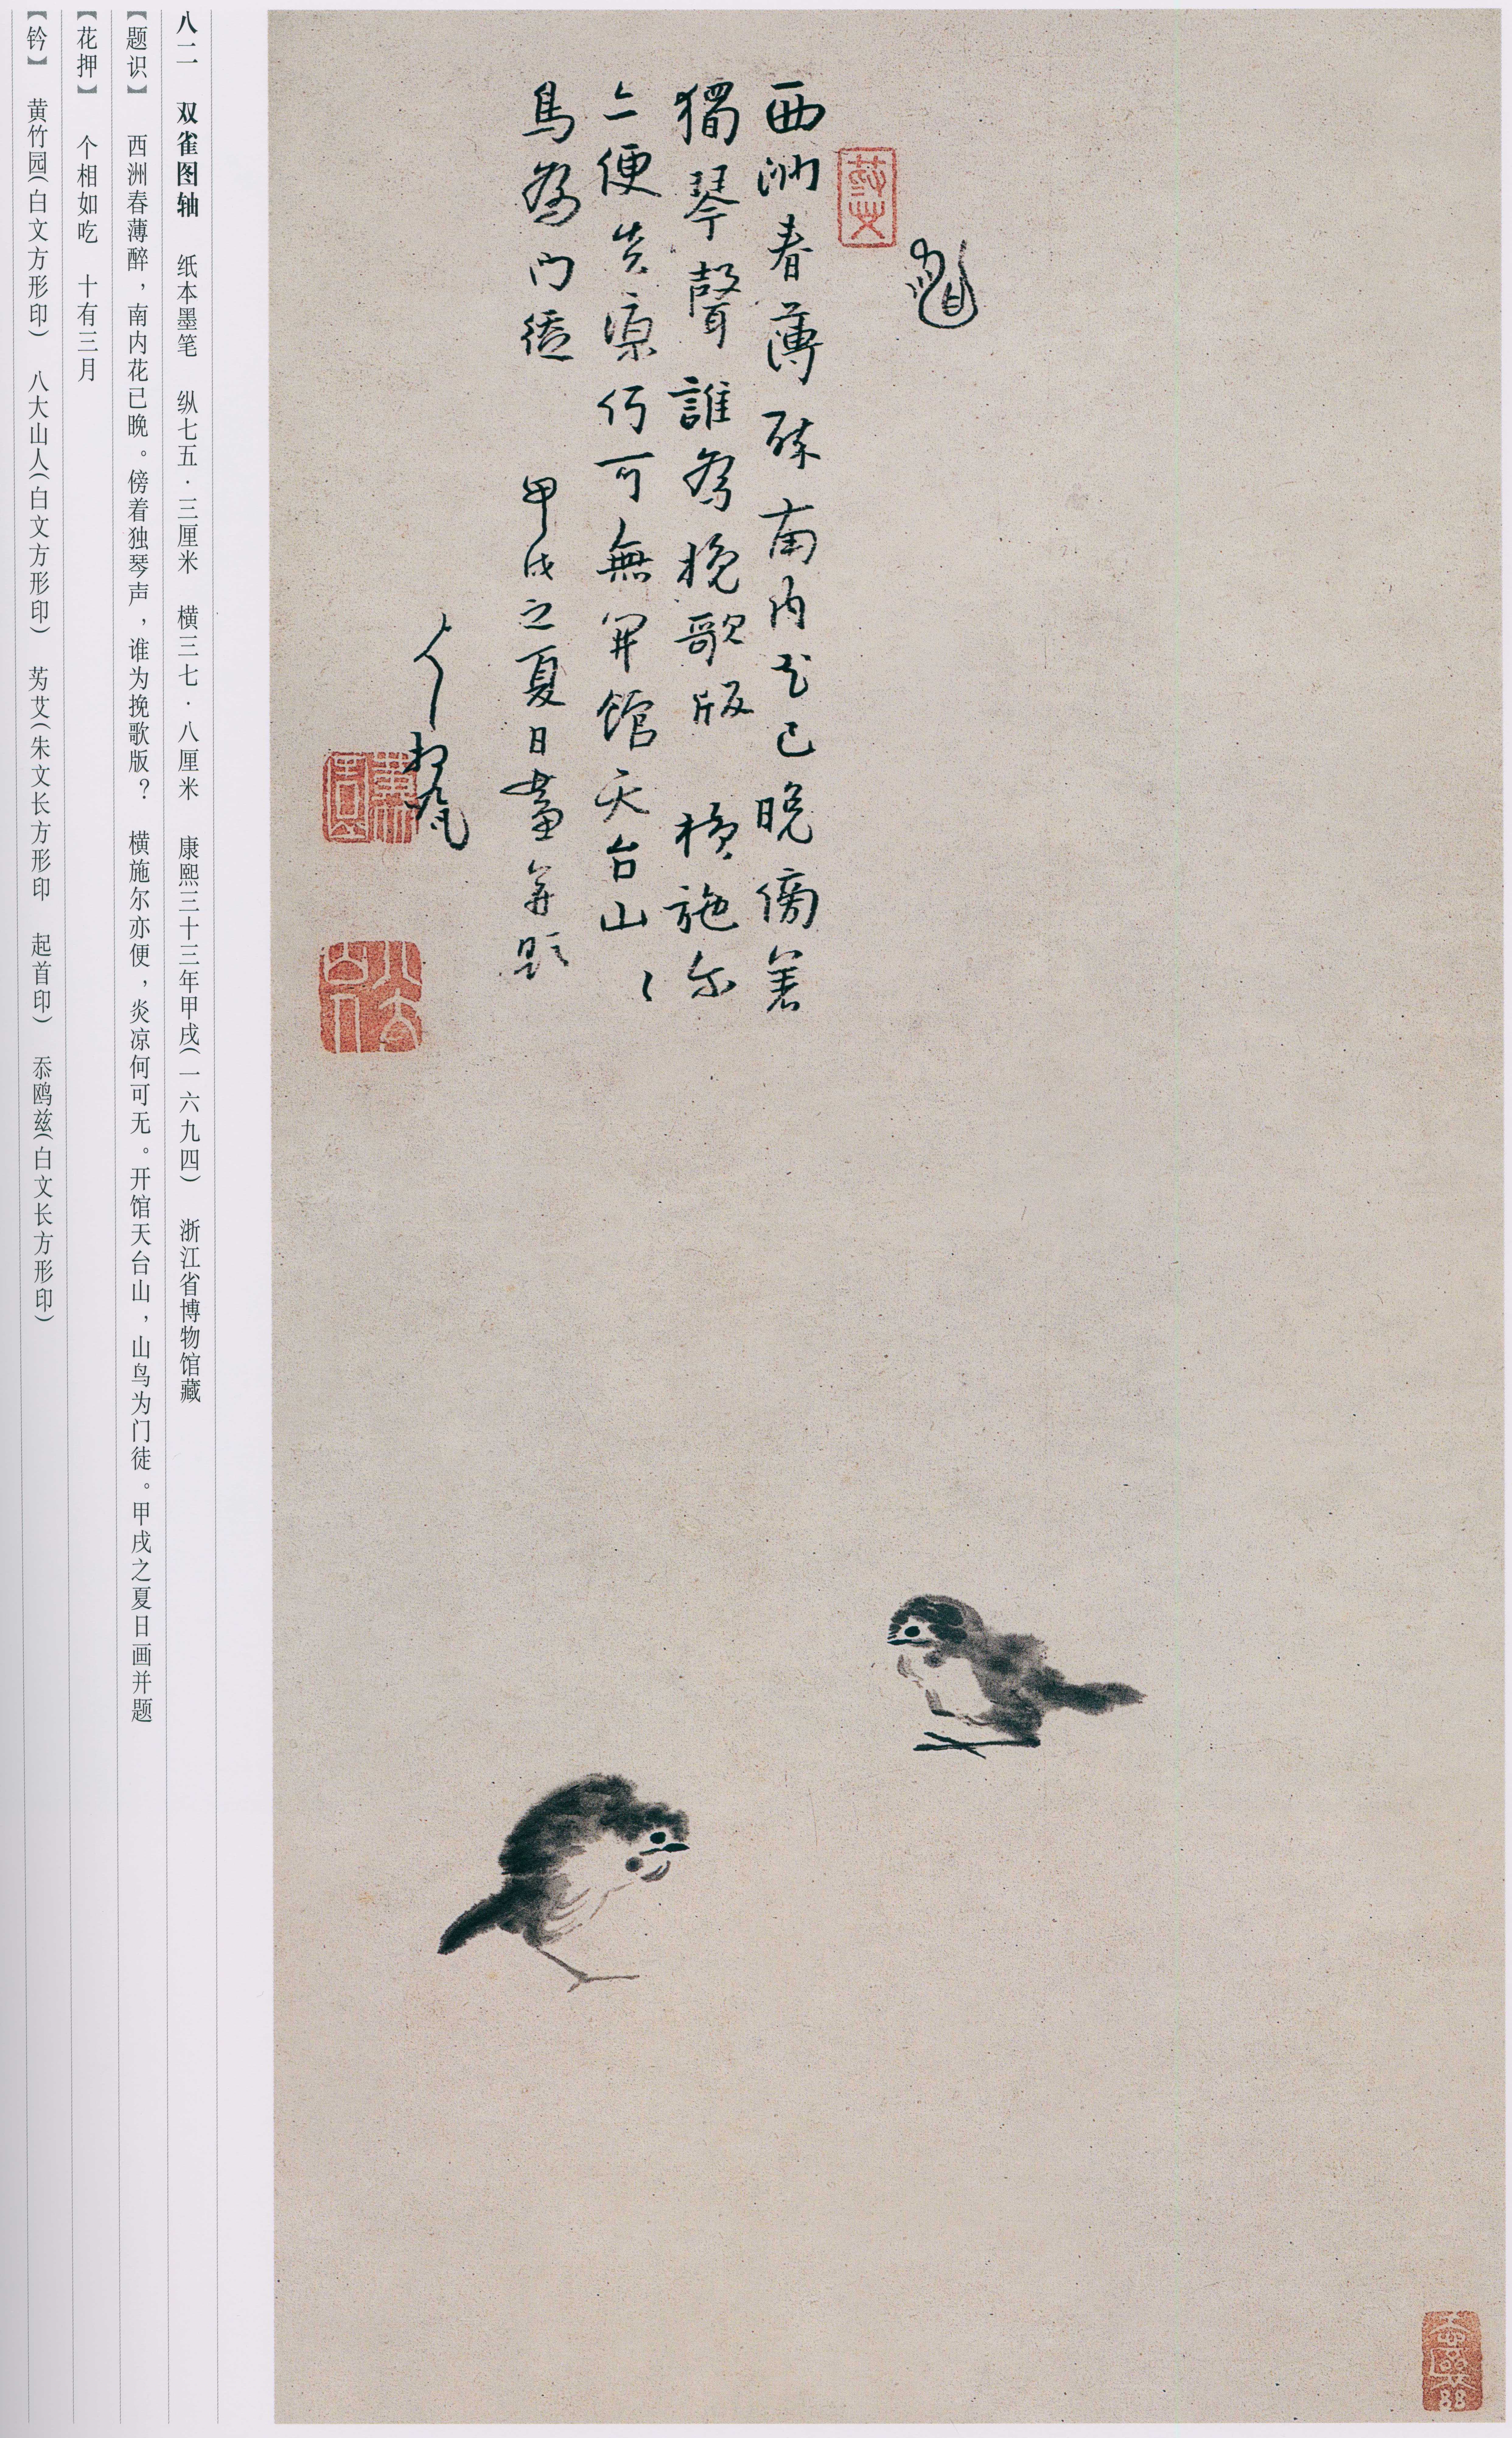 西洲春薄醉南内花已晚傍着
獨琴聲誰為挽歌版 横施尔
亦便炎凉何可無開館天台山〻
鳥為门徒 甲戌之夏日畫并題
八二 双雀图轴 纸本墨笔 纵七五·三厘米 横三七·八厘米 康熙三十三年甲戌(一六九四) 浙江省博物馆藏
【题识】 西洲春薄醉，南内花已晚。傍着独琴声，谁为挽歌版？ 横施尔亦便，炎凉何可无。开馆天台山，山鸟为门徒。甲戌之夏日画并题
【花押】 个相如吃 十有三月
【钤】 黄竹园(白文方形印) 八大山人(白文方形印) 艻艾(朱文长方形印 起首印) 忝鸥兹(白文长方形印)